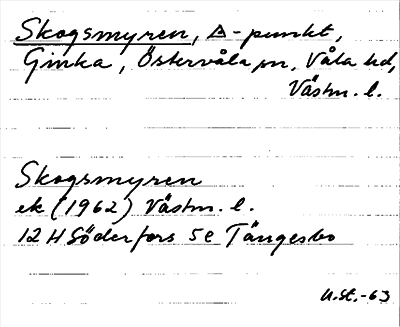 Skogsmyren, △-punkt,
Ginka, Östervåla sn, Våla hd,
Västm. l.
Skogsmyren
ek (1962) Västm. l.
12 H Söderfors 5e Tängesbo
U.St.-63